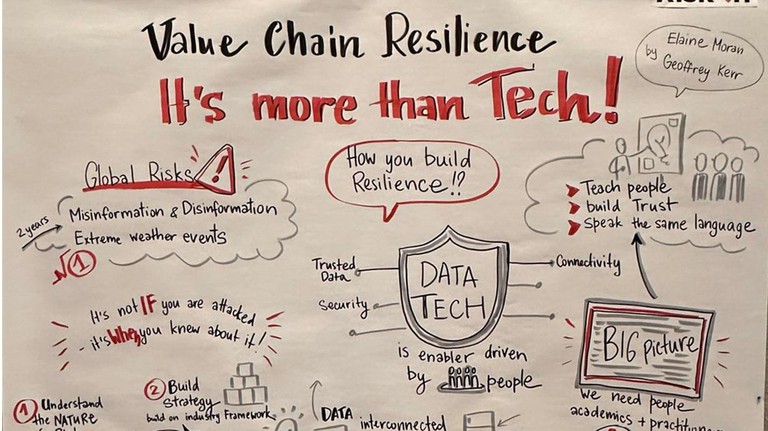 Value Chain Resilience
It's more than Tech!
Elaine Moran
by Geoffrey Kerr
Global Risks
!
2 years
Misinformation & Disinformation
Extreme weather events
1
How you build
Resilience!?
Teach people
build Trust
Speak the same language
Trusted
Data
Security
DATA
TECH
Connectivity
is enabler driven
by people
It's not IF you are attacked
- it's When you knew about it!
BIG picture
We need people
academics +
1 Understand
the NATURE
2 Build
Strategy
build on industry Framework
DATA interconnected